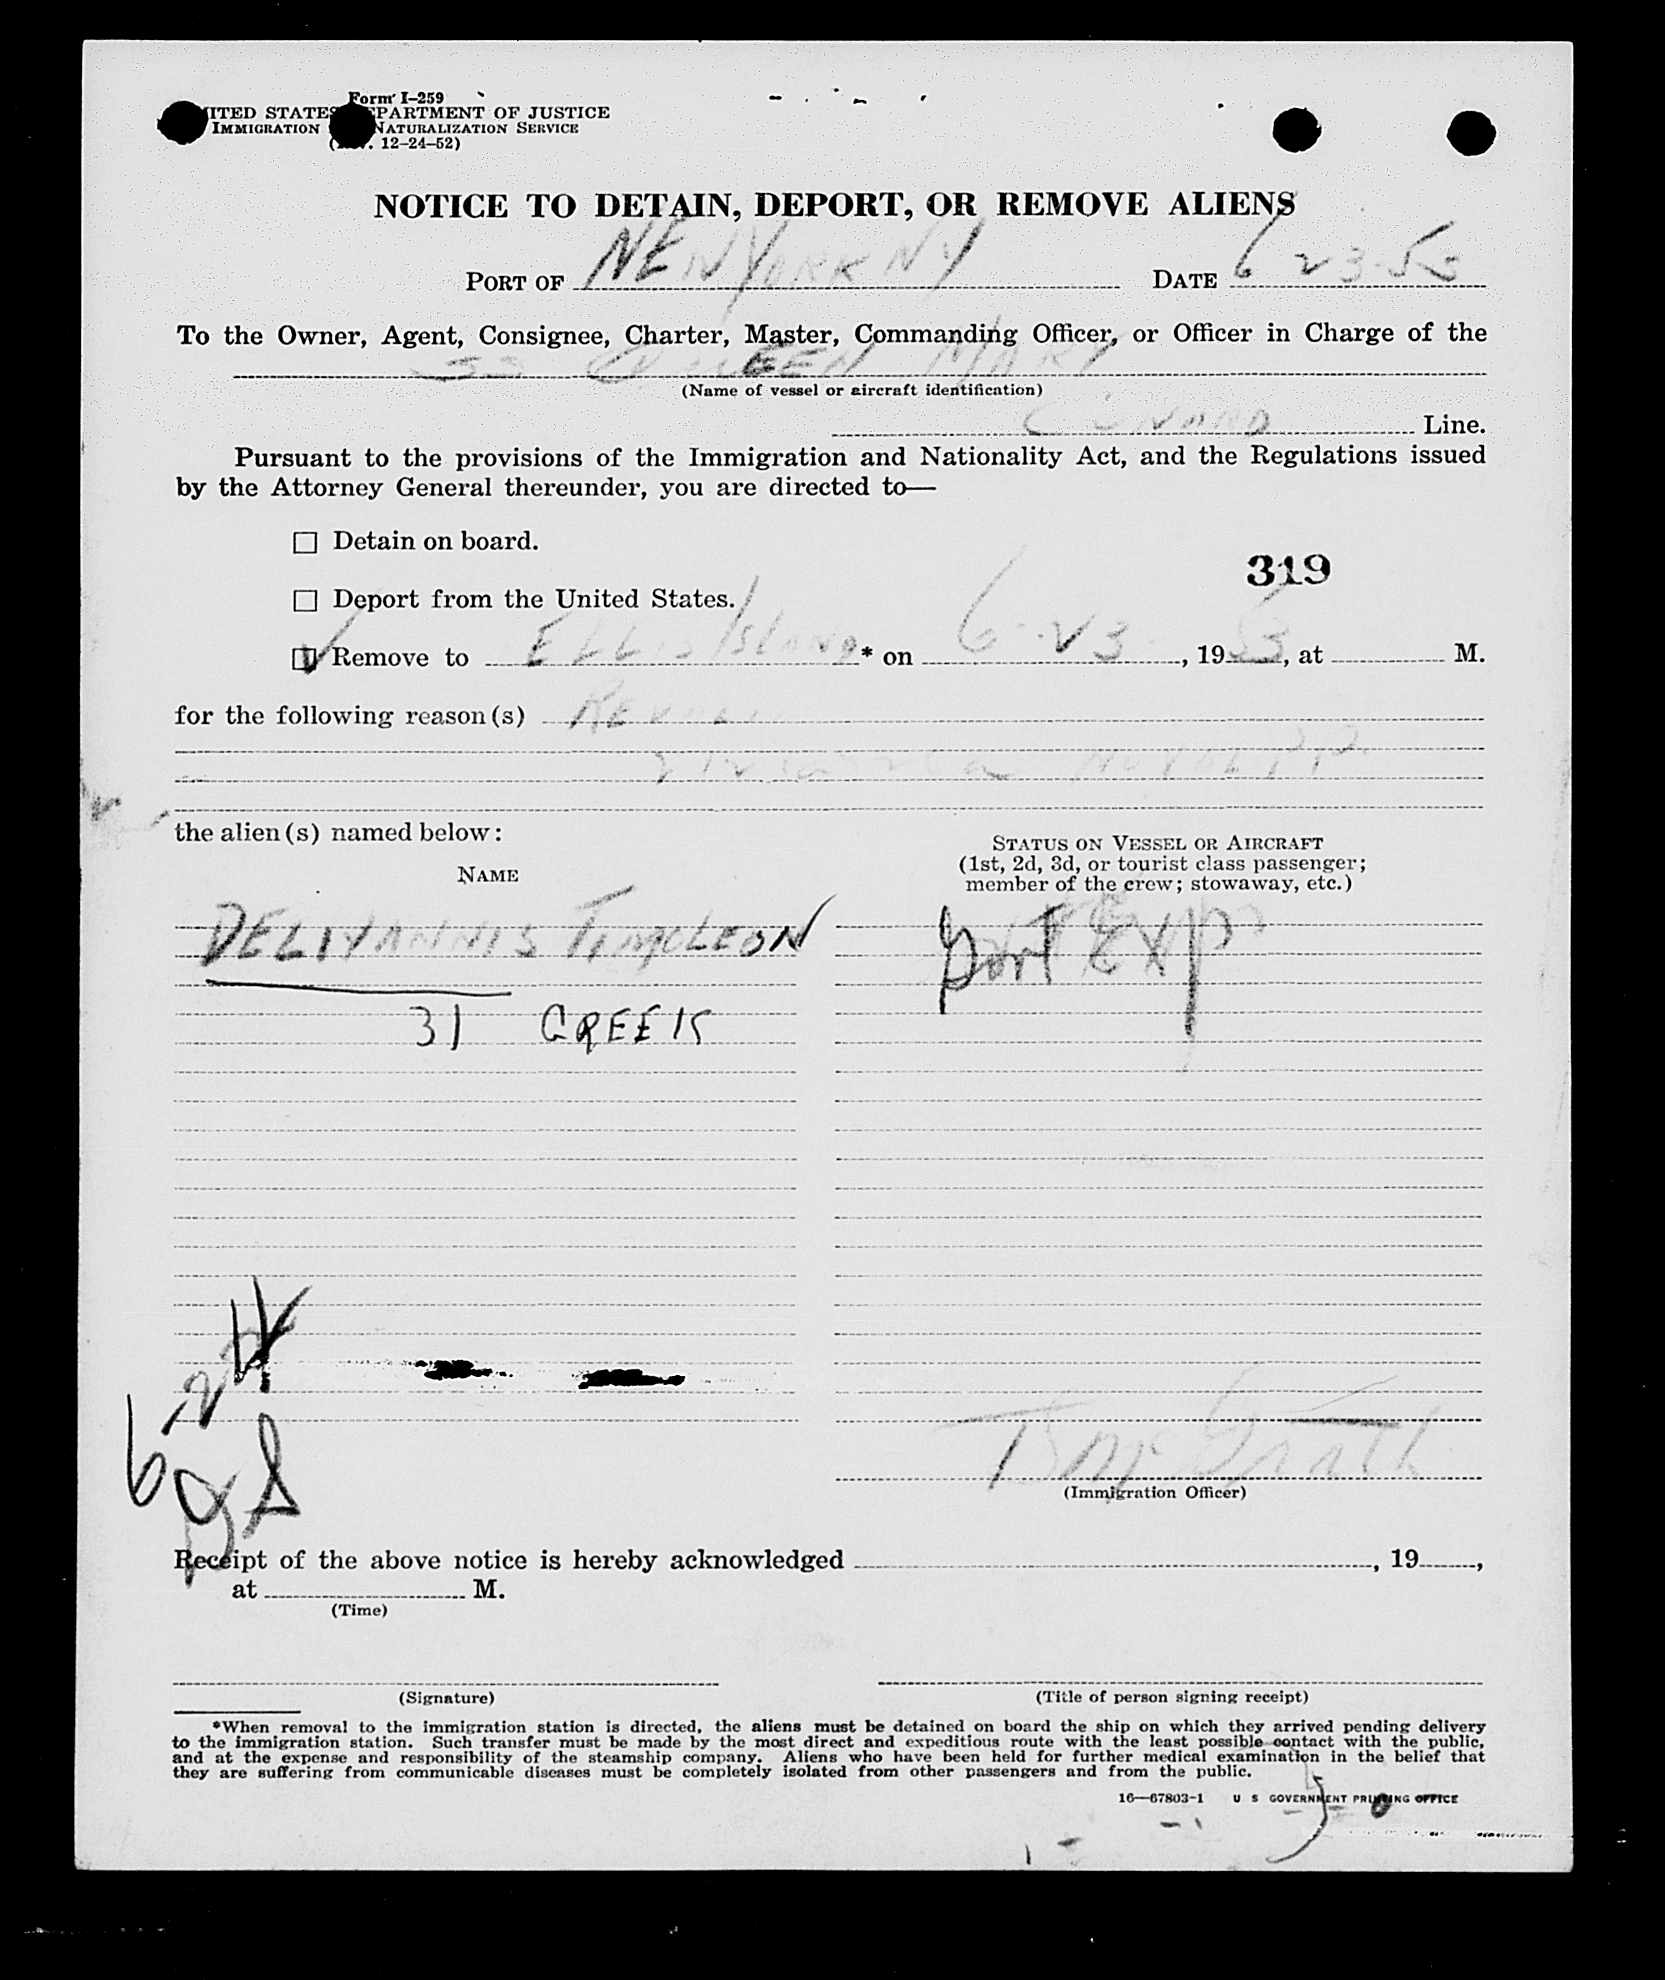 Form I-259
UNITED STATES DEPARTMENT OF JUSTICE
IMMIGRATION NATURALIZATION SERVICE
12-24-52)
NOTICE TO DETAIN, DEPORT, OR REMOVE ALIENS
PORT OF NEW YORK NY DATE 6 23-53
To the Owner, Agent, Consignee, Charter, Master, Commanding Officer, or Officer in Charge of the
SS QUEEN MARY
(Name of vessel or aircraft identification)
CUNARD Line.
Pursuant to the provisions of the Immigration and Nationality Act, and the Regulations issued
by the Attorney General thereunder, you are directed to—
☐ Detain on board.
319
☐ Deport from the United States.
☑ Remove to ELLIS ISLAND * on 6-23, 1953, at M.
for the following reason(s)
the alien(s) named below:
NAME
STATUS ON VESSEL OR AIRCRAFT
(1st, 2d, 3d, or tourist class passenger;
member of the crew; stowaway, etc.)
DELIYANNIS TIMOLEON
31 GREEK
6 24
(Immigration Officer)
Receipt of the above notice is hereby acknowledged , 19 ,
at M.
(Time)
(Signature) (Title of person signing receipt)
*When removal to the immigration station is directed, the aliens must be detained on board the ship on which they arrived pending delivery
to the immigration station. Such transfer must be made by the most direct and expeditious route with the least possible contact with the public,
and at the expense and responsibility of the steamship company. Aliens who have been held for further medical examination in the belief that
they are suffering from communicable diseases must be completely isolated from other passengers and from the public.
16—67803-1 U S GOVERNMENT PRINTING OFFICE